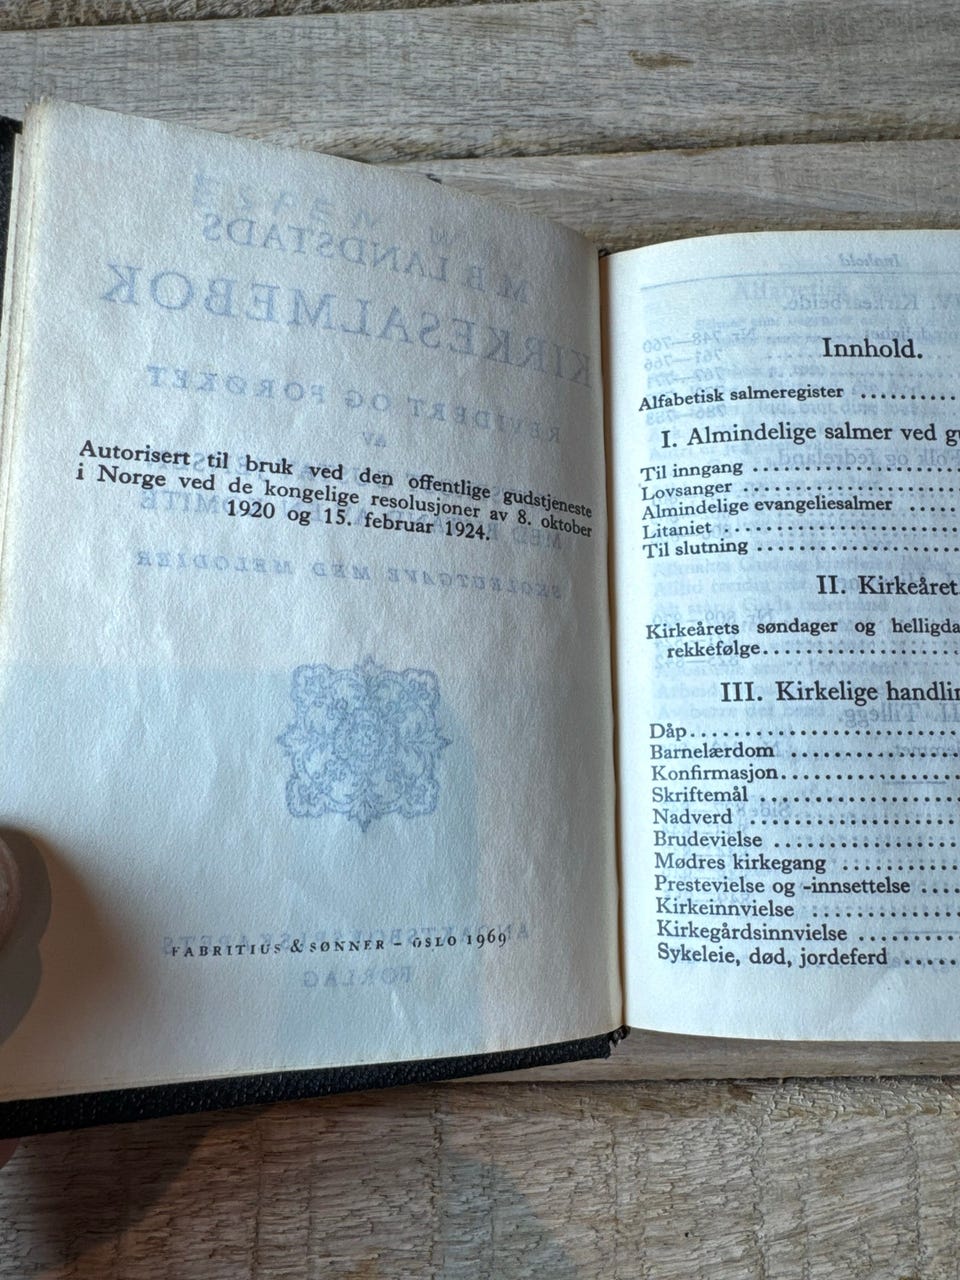 M B LANDSTADS
KIRKESALMEBOK
REVIDERT OG FORØKET
AV
Autorisert til bruk ved den offentlige gudstjeneste
i Norge ved de kongelige resolusjoner av 8. oktober
1920 og 15. februar 1924.
SKOLEUTGAVE MED MELODIER
FABRITIUS & SØNNER – OSLO 1969
FORLAG
Innhold
Innhold.
Alfabetisk salmeregister ..........
I. Almindelige salmer ved gu
Til inngang ..........
Lovsanger ..........
Almindelige evangeliesalmer ......
Litaniet ..........
Til slutning ..........
II. Kirkeåret.
Kirkeårets søndager og helligda
rekkefølge..........
III. Kirkelige handlin
Dåp..........
Barnelærdom ..........
Konfirmasjon..........
Skriftemål ..........
Nadverd ..........
Brudevielse ..........
Mødres kirkegang ..........
Prestevielse og -innsettelse ....
Kirkeinnvielse ..........
Kirkegårdsinnvielse ..........
Sykeleie, død, jordeferd .....